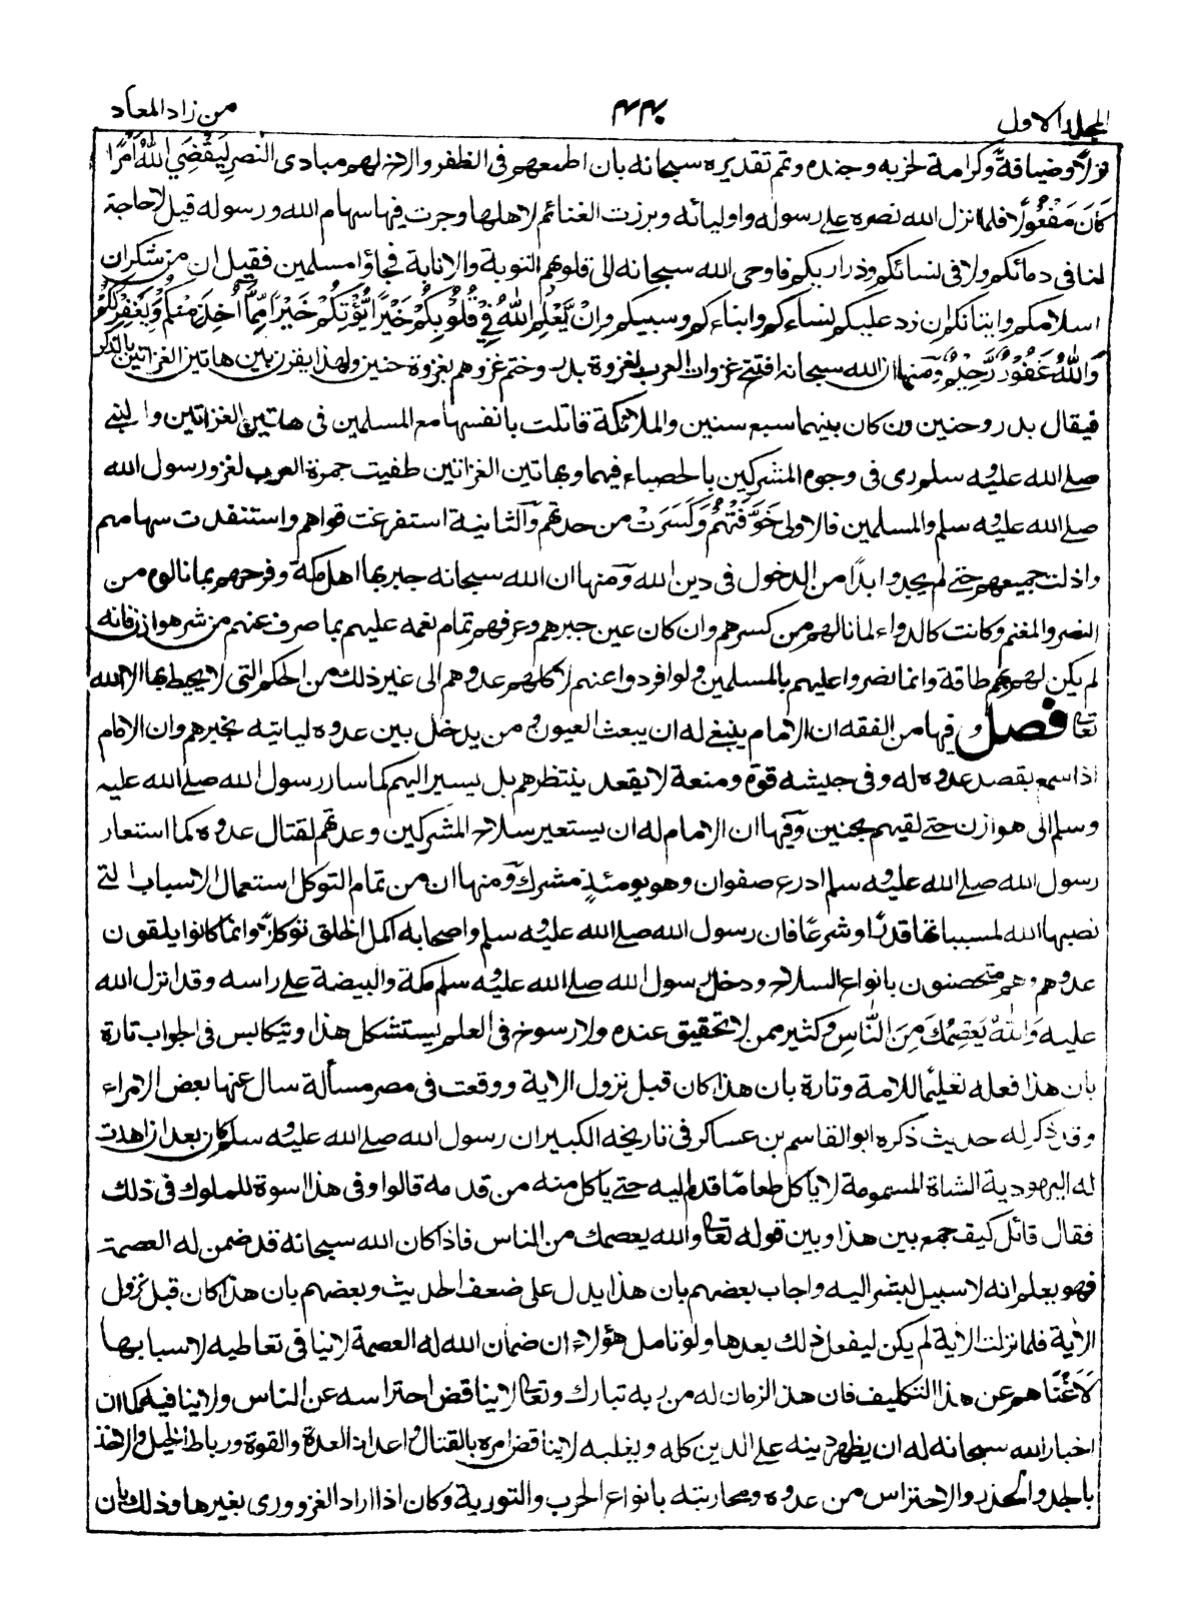 المجلد الاول
۴۴۰
من زاد المعاد
نزلاً وضيافةً وكرامة لحزبه وجنده وتم تقديره سبحانه بان اطمعهم فى الظفر والاخ لهم مبادى النصر لِيَقْضِيَ اللّٰهُ اَمْرًا
كَانَ مَفْعُوْلًا فلما انزل الله نصره على رسوله واوليائه وبرزت الغنائم لاهلها وجرت فيها سهام الله ورسوله قيل لا حاجة
لنا فى دمائكم ولا فى نسائكم وذراريكم فاوحى الله سبحانه الى قلوبهم التوبة والانابة فجاؤا مسلمين فقيل ان من شكران
اسلامكم واتيانكم ان نرد عليكم نساءكم وابناءكم وسبيكم وَاِنْ يَّعْلَمِ اللّٰهُ فِيْ قُلُوْبِكُمْ خَيْرًا يُّؤْتِكُمْ خَيْرًا مِّمَّا اُخِذَ مِنْكُمْ وَيَغْفِرْ لَكُمْ
وَاللّٰهُ غَفُوْرٌ رَّحِيْمٌ ومنها ان الله سبحانه افتتح غزوات العرب بغزوة بدر وختم غزوهم بغزوة حنين ولهذا يقرن بين هاتين الغزاتين بالذكر
فيقال بدر وحنين وان كان بينهما سبع سنين والملائكة قاتلت بانفسها مع المسلمين فى هاتين الغزاتين والنبى
صلے الله عليه وسلم رمى فى وجوه المشركين بالحصباء فيهما وبهاتين الغزاتين طفيت جمرة العرب لغزو رسول الله
صلے الله عليه وسلم والمسلمين فالاولى خَوَّفَتْهُمْ وَكَسَرَتْ من حدتهم والثانية استفرغت قواهم واستنفدت سهامهم
واذلت جميعهم حتے لم يجدوا بدًا من الدخول فى دين الله ومنها ان الله سبحانه جبر بها اهل مكة وفرحهم بما نالوه من
النصر والمغنم وكانت كالدواء لما نالهم من كسرهم وان كان عين جبرهم وعرفهم تمام نعمه عليهم بما صرف عنهم من شر هوازن فانه
لم يكن لهم بهم طاقة وانما نصروا عليهم بالمسلمين ولو افردوا عنهم لاكلهم عدوهم الى غير ذلك من الحكم التى لا يحيط بها الا الله
تعا فصل وفيها من الفقه ان الامام ينبغے له ان يبعث العيون ومن يدخل بين عدوه لياتيه بخبرهم وان الامام
اذا سمع بقصد عدوه له وفى جيشه قوة ومنعة لا يقعد ينتظرهم بل يسير اليهم كما سار رسول الله صلے الله عليه
وسلم الى هوازن حتے لقيهم بحنين وفيها ان الامام له ان يستعير سلاح المشركين وعدتهم لقتال عدوه كما استعار
رسول الله صلے الله عليه وسلم ادرع صفوان وهو يومئذٍ مشرك ومنها ان من تمام التوكل استعمال الاسباب التے
نصبها الله لمسبباتها قدرًا وشرعًا فان رسول الله صلے الله عليه وسلم واصحابه اكمل الخلق توكلاً وانما كانوا يلقون
عدوهم وهم متحصنون بانواع السلاح ودخل رسول الله صلے الله عليه وسلم مكة والبيضة على راسه وقد انزل الله
عليه وَاللّٰهُ يَعْصِمُكَ مِنَ النَّاسِ وكثير ممن لا تحقيق عنده ولا رسوخ فى العلم يستشكل هذا ويتكايس فى الجواب تارة
بان هذا فعله تعليمًا للامة وتارة بان هذا كان قبل نزول الاية ووقعت فى مصر مسألة سال عنها بعض الامراء
وقد ذكر له حديث ذكره ابو القاسم بن عساكر فى تاريخه الكبير ان رسول الله صلے الله عليه وسلم كان بعد ان اهدت
له اليهودية الشاة المسمومة لا ياكل طعامًا قدم اليه حتے ياكل منه من قدمه قالوا وفى هذا اسوة للملوك فى ذلك
فقال قائل كيف جمع بين هذا وبين قوله تعا والله يعصمك من الناس فاذا كان الله سبحانه قد ضمن له العصمة
فهو يعلم انه لا سبيل لبشر اليه واجاب بعضهم بان هذا يدل على ضعف الحديث وبعضهم بان هذا كان قبل نزول
الاية فلما نزلت الاية لم يكن ليفعل ذلك بعدها ولو تامل هؤلاء ان ضمان الله له العصمة لا ينافى تعاطيه لاسبابها
لَاَغْنَاهم عن هذا التكليف فان هذ الزمان له من ربه تبارك وتعا لا يناقض احتراسه عن الناس ولا ينافيه كما ان
اخبار الله سبحانه له ان يظهر دينه على الدين كله ويغلبه لا يناقض امره بالقتال واعداد العدة والقوة ورباط الخيل والاخذ
بالجد والحذر والاحتراس من عدوه ومحاربته بانواع الحرب والتورية وكان اذا اراد الغزو ورى بغيرها وذلك بان